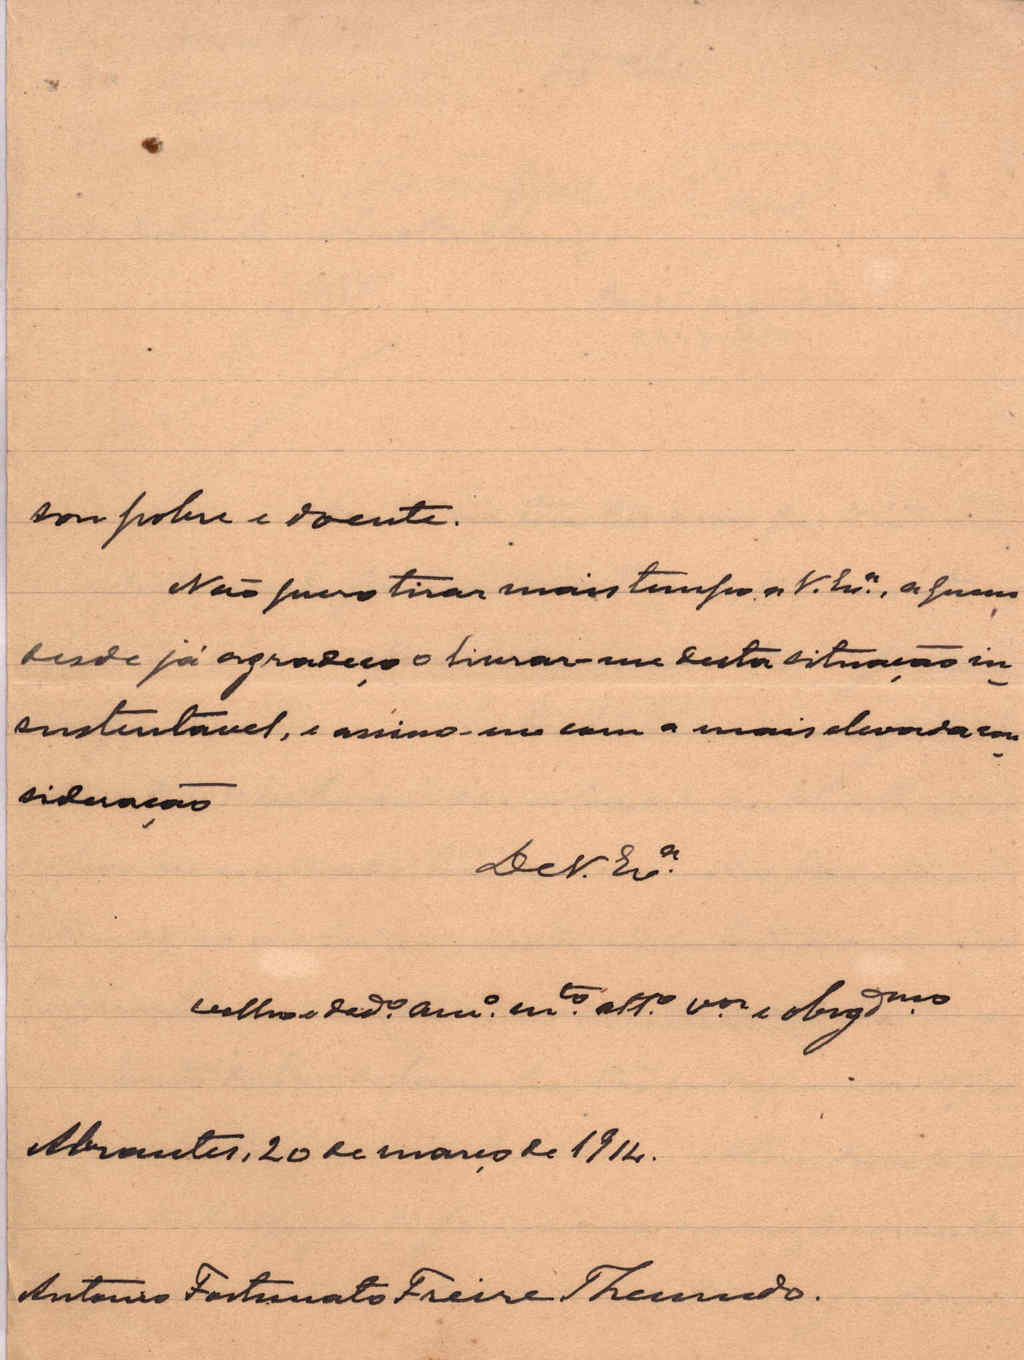 sou pobre e doente.
Não quero tirar mais tempo a V. Ex.ª, a quem
desde já agradeço o livrar-me desta situação in-
sustentavel, e assino-me com a mais elevada con-
sideração
De V. Ex.ª
velho e ded.º am.º m.to att.º v.or e obrgd.mo
Abrantes, 20 de março de 1914.
Antonio Fortunato Freire Themudo.